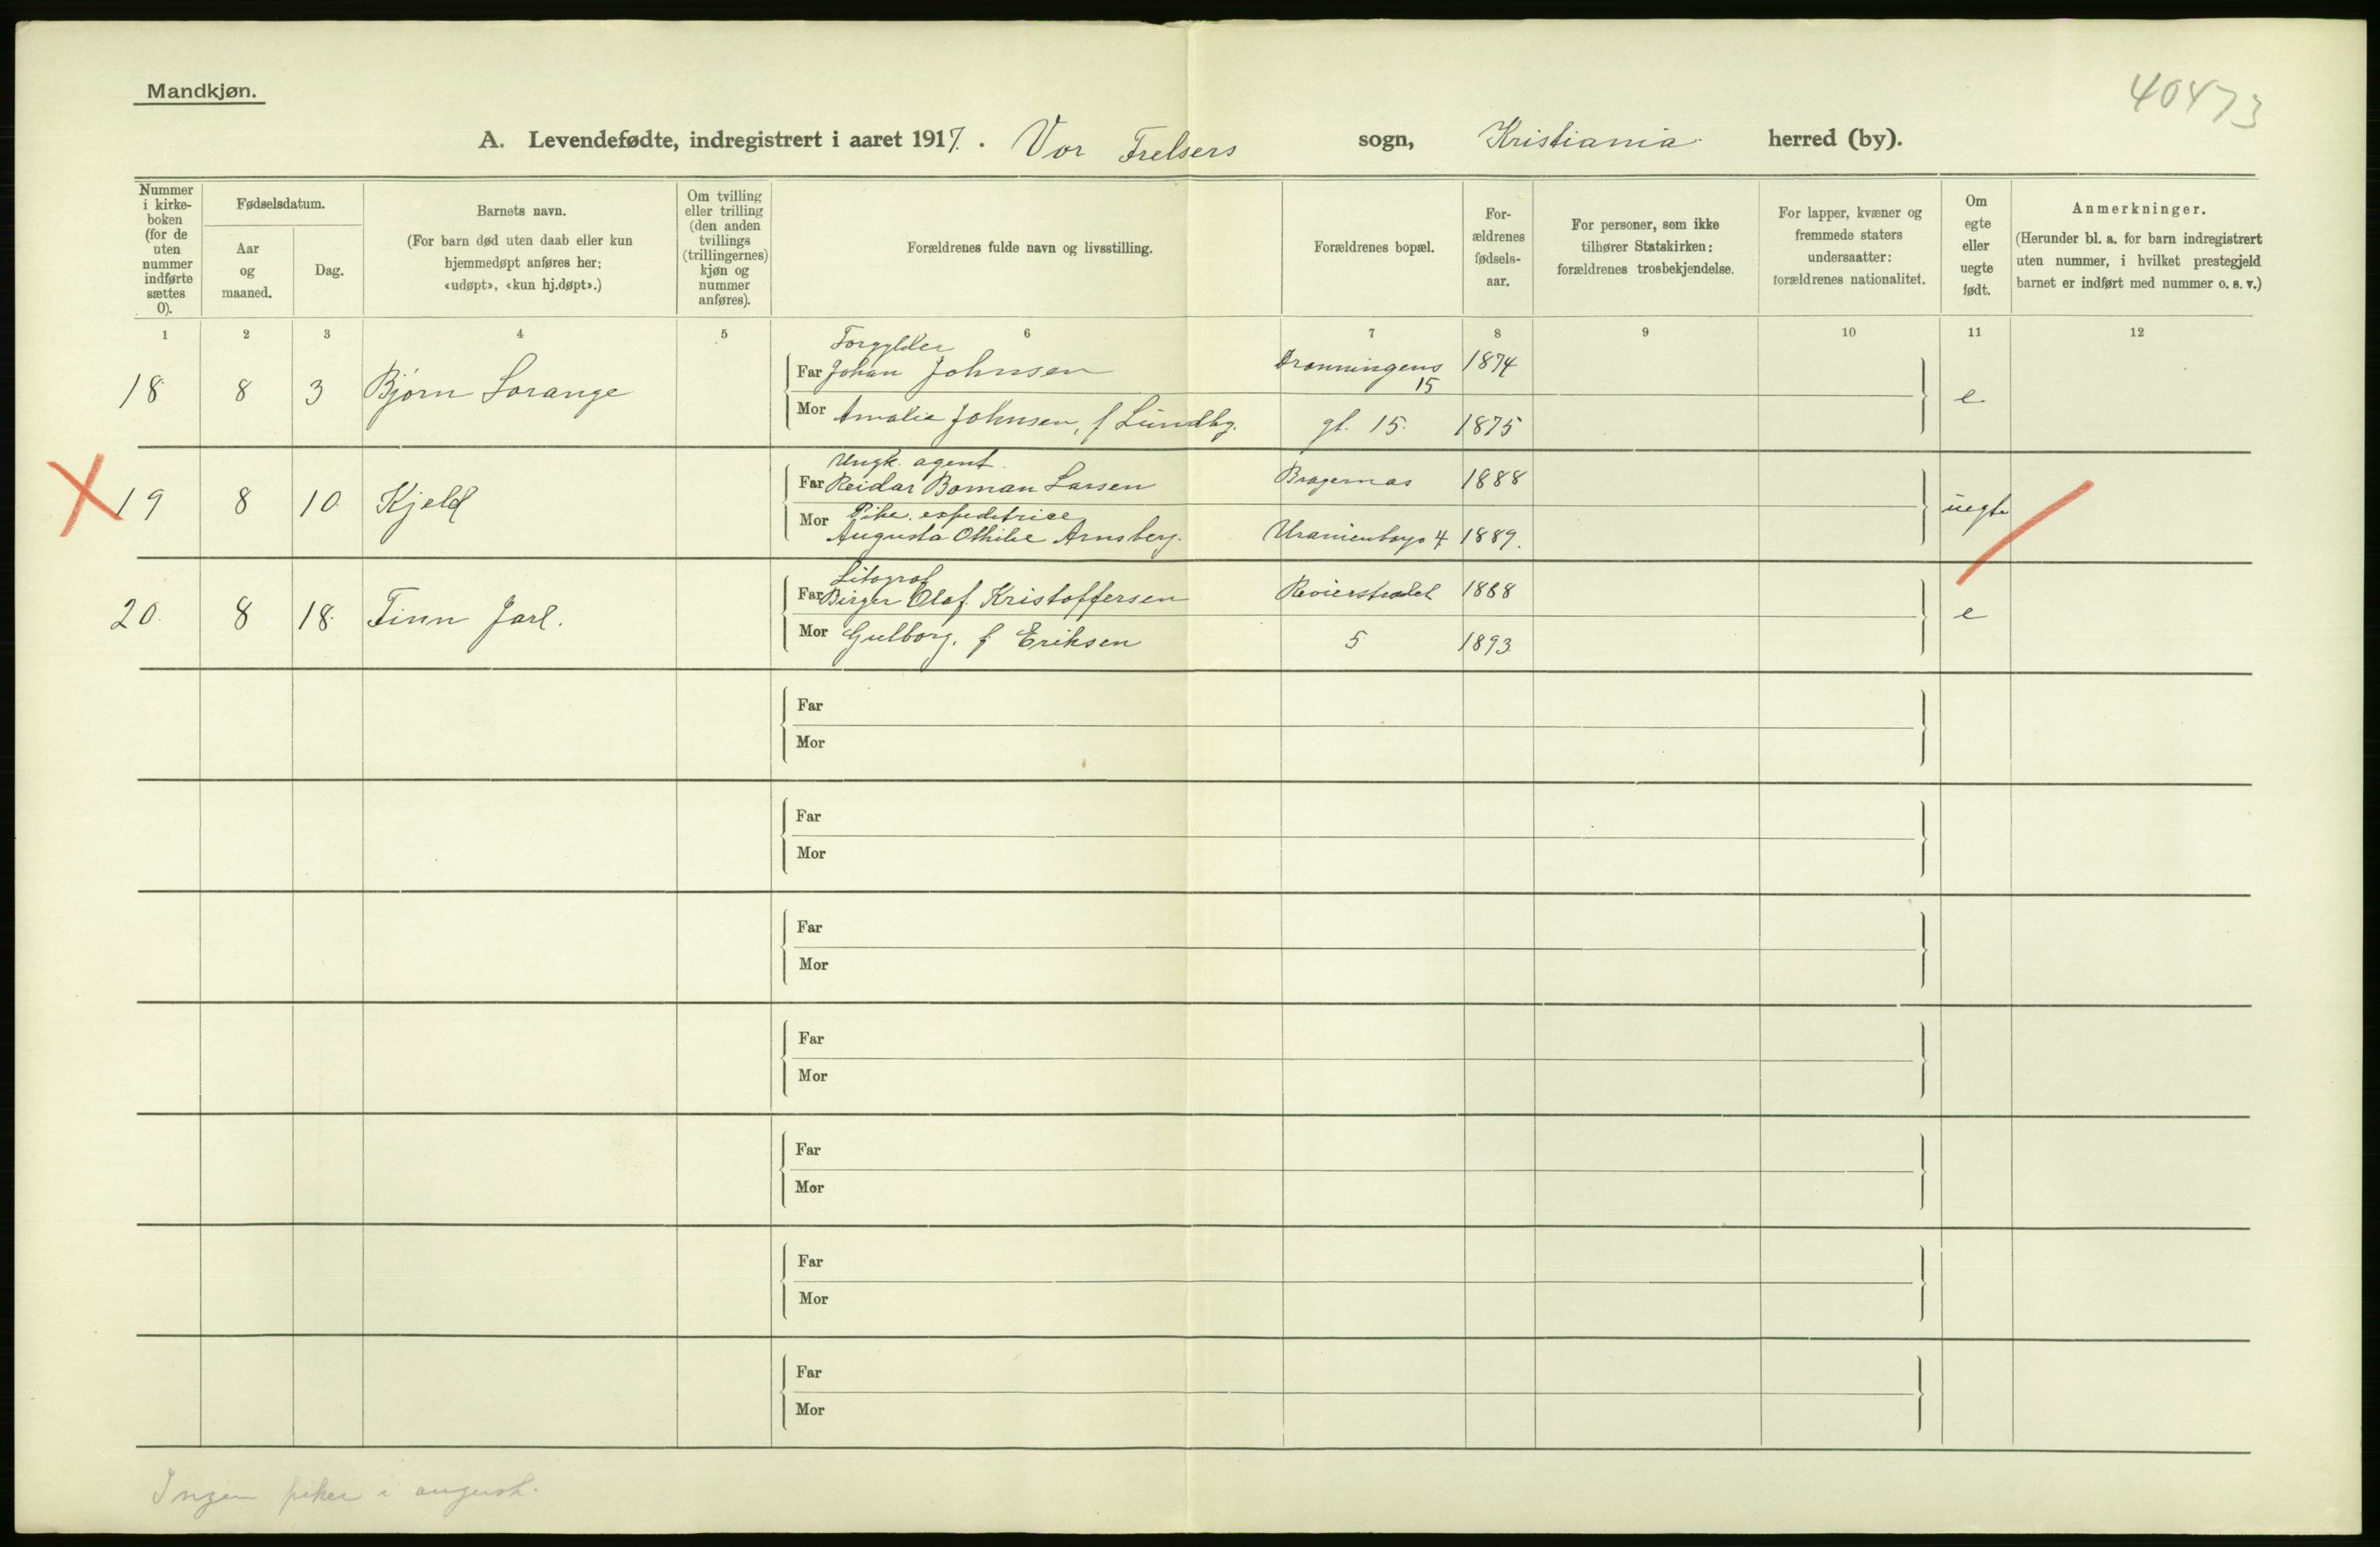 Mandkjøn.
40473
A. Levendefødte, indregistrert i aaret 1917. Vor Frelsers sogn, Kristiania herred (by).
Nummer i kirke-boken (for de uten nummer indførte sættes 0).
Fødselsdatum.
Aar og maaned.
Dag.
Barnets navn.
(For barn død uten daab eller kun hjemmedøpt anføres her: «udøpt», «kun hj.døpt».)
Om tvilling eller trilling (den anden tvillings (trillingernes) kjøn og nummer anføres).
Forældrenes fulde navn og livsstilling.
Forældrenes bopæl.
For-ældrenes fødsels-aar.
For personer, som ikke tilhører Statskirken: forældrenes trosbekjendelse.
For lapper, kvæner og fremmede staters undersaatter: forældrenes nationalitet.
Om egte eller uegte født.
Anmerkninger.
(Herunder bl. a. for barn indregistrert uten nummer, i hvilket prestegjeld barnet er indført med nummer o. s. v.)
1 2 3 4 5 6 7 8 9 10 11 12
Forgylder
18 8 3 Bjørn Lorange Far Johan Johnsen Dronningens 15 1874 e.
Mor Amalie Johnsen, f Lundbg. gt. 15. 1875
Ungk. agent.
X 19 8 10. Kjeld Far Reidar Boman Larsen Bragernas 1888 uegte
Pike. espeditrice
Mor Augusta Othilie Arnsberg. Uranienborgs 4 1889.
Litograf
20. 8 18. Finn Jarl. Far Birger Olaf. Kristoffersen Revierstrædet 1888 e
Mor Gulborg. f Eriksen 5 1893
Far
Mor
Far
Mor
Far
Mor
Far
Mor
Far
Mor
Far
Mor
Far
Mor
Ingen piker i august.